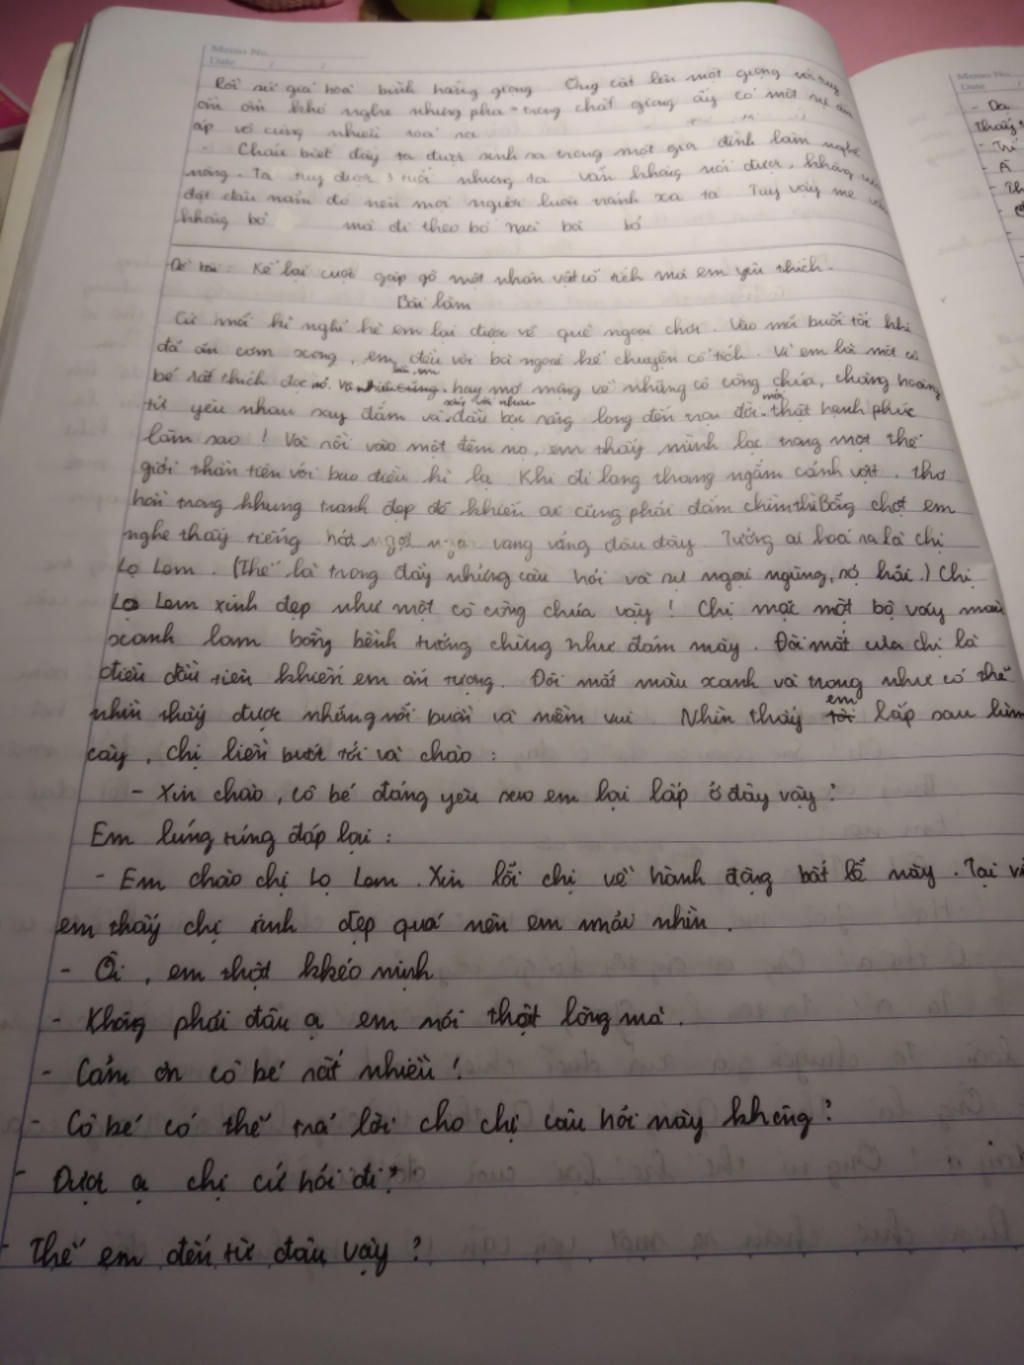 Memo No.
Date / /
Rồi sứ giả hoà bình hàng gióng. Ông cất lên một giọng nói
ồm ồm khó nghe nhưng pha trong chất giọng ấy có một sự ấm
áp vô cùng
- Cháu biết đấy ta được sinh ra trong một gia đình làm nghề
nông. Ta tuy được 3 tuổi nhưng ta vẫn không nói được, không
đặt đâu nằm đó nên mọi người luôn tránh xa ta. Tuy vậy mẹ vẫn
không bỏ mà đi theo bỏ
Đề bài: Kể lại cuộc gặp gỡ một nhân vật cổ tích mà em yêu thích.
Bài làm
Cứ mỗi kì nghỉ hè em lại được về quê ngoại chơi. Vào mỗi buổi tối khi
đã ăn cơm xong, em đều với bà ngoại kể chuyện cổ tích. Vì em là một cô
bé rất thích đọc nó. Và hay mơ mộng về những cô công chúa, chàng hoàng
tử yêu nhau say đắm và sống với nhau đầu bạc răng long đến trọn đời mới thật hạnh phúc
làm sao! Và rồi vào một đêm nọ, em thấy mình lạc trong một thế
giới thần tiên với bao điều kì lạ. Khi đi lang thang ngắm cảnh vật, thơ
trong khung tranh đẹp đó khiến ai cũng phải đắm chìm thì Bỗng chợt em
nghe thấy tiếng hát vang vảng đâu đây. Tưởng ai hoá ra là chị
Lọ Lem. (Thế là trong đầy những câu hỏi và sự ngại ngùng, sợ hãi.) Chị
Lọ Lem xinh đẹp như một cô công chúa vậy! Chị mặc một bộ váy màu
xanh lam bồng bềnh tưởng chừng như đám mây. Đôi mắt của chị là
điều đầu tiên khiến em ấn tượng. Đôi mắt màu xanh và trong như có thể
nhìn thấy được những nỗi buồn và niềm vui. Nhìn thấy em lấp sau lùm
cây, chị liền bướt tới và chào:
- Xin chào, cô bé đáng yêu sao em lại lấp ở đây vậy?
Em lúng túng đáp lại:
- Em chào chị Lọ Lem. Xin lỗi chị về hành động bất lễ này. Tại vì
em thấy chị xinh đẹp quá nên em nhìn.
- Ôi, em thật khéo nịnh
- Không phải đâu ạ em nói thật lòng mà.
- Cảm ơn cô bé rất nhiều!
- Cô bé có thể trả lời cho chị câu hỏi này không?
- Được ạ chị cứ hỏi đi?
- Thế em đến từ đâu vậy?
Memo No.
Date